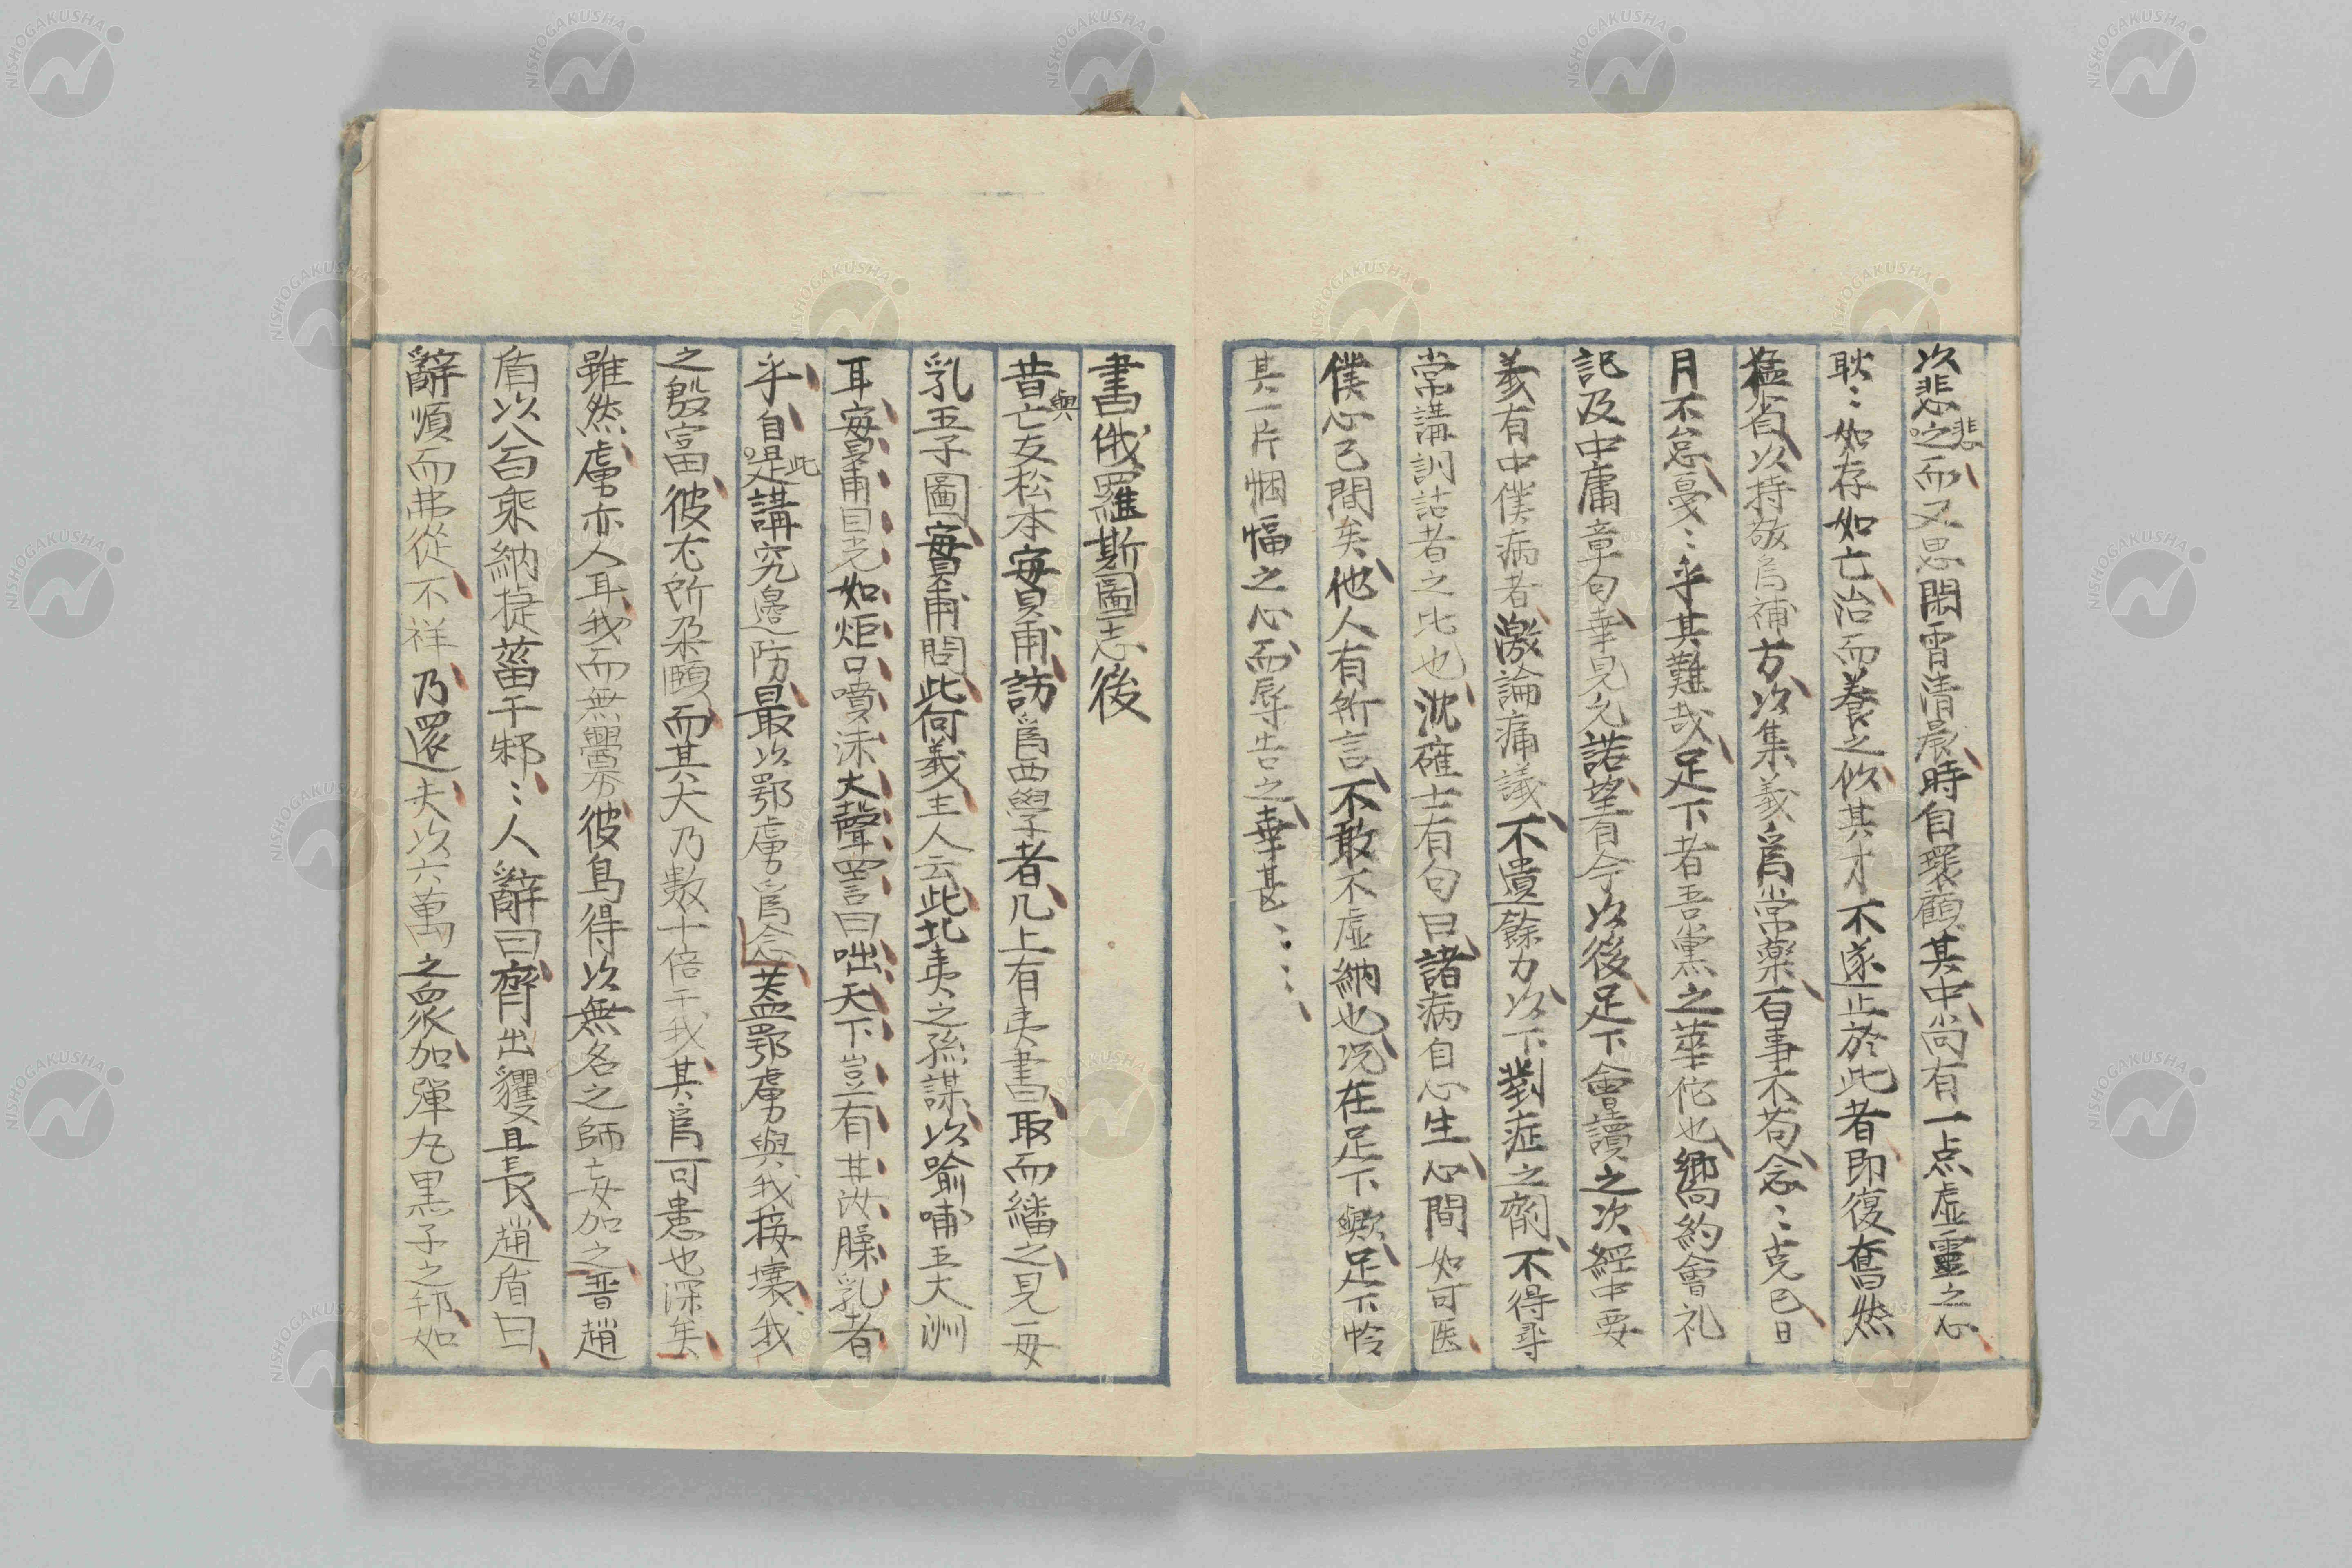 次悲之悲而又思閑宵清晨時自環顧其中尚有一点虛靈之心
耿〻如存如亡治而養之似其才不遂止於此者即復奮然
猛省以持敬為補方以集義為常藥百事不苟念〻克已日
月不怠憂〻乎其難哉足下者吾黨之華佗也鄉約會礼
記及中庸章句幸見允諾望自今以後足下會讀之次經中要
義有中僕病者激論痛議不遺餘力以下對症之劑不得尋
常講訓詁者之比也沈確士有句曰諸病自心生心間如可医
僕心已間矣他人有所言不敢不虛納也况在足下歟足下怜
其一片悃愊之心而辱告之幸甚〻〻
書俄羅斯圖志後
昔與亡友松本實甫訪為西學者几上有夷書取而繙之見一母
乳五子圖實甫問此何義主人云此北夷之孫謀以喻哺五大洲
耳實甫目光如炬口噴沫大聲罵曰咄天下豈有甘汝臊乳者
乎自是此講究邊防最以鄂虜為念蓋鄂虜與我接壤我
之殷富彼不所朶頤而其大乃數十倍于我其為可患也深矣
雖然虜亦人耳我而無釁彼烏得以無名之師妄加之晋趙
盾以八百乘納捷菑于邾〻人辭曰齊出貜且長趙盾曰
辭順而弗從不祥乃還夫以六萬之衆加彈丸黒子之邾如